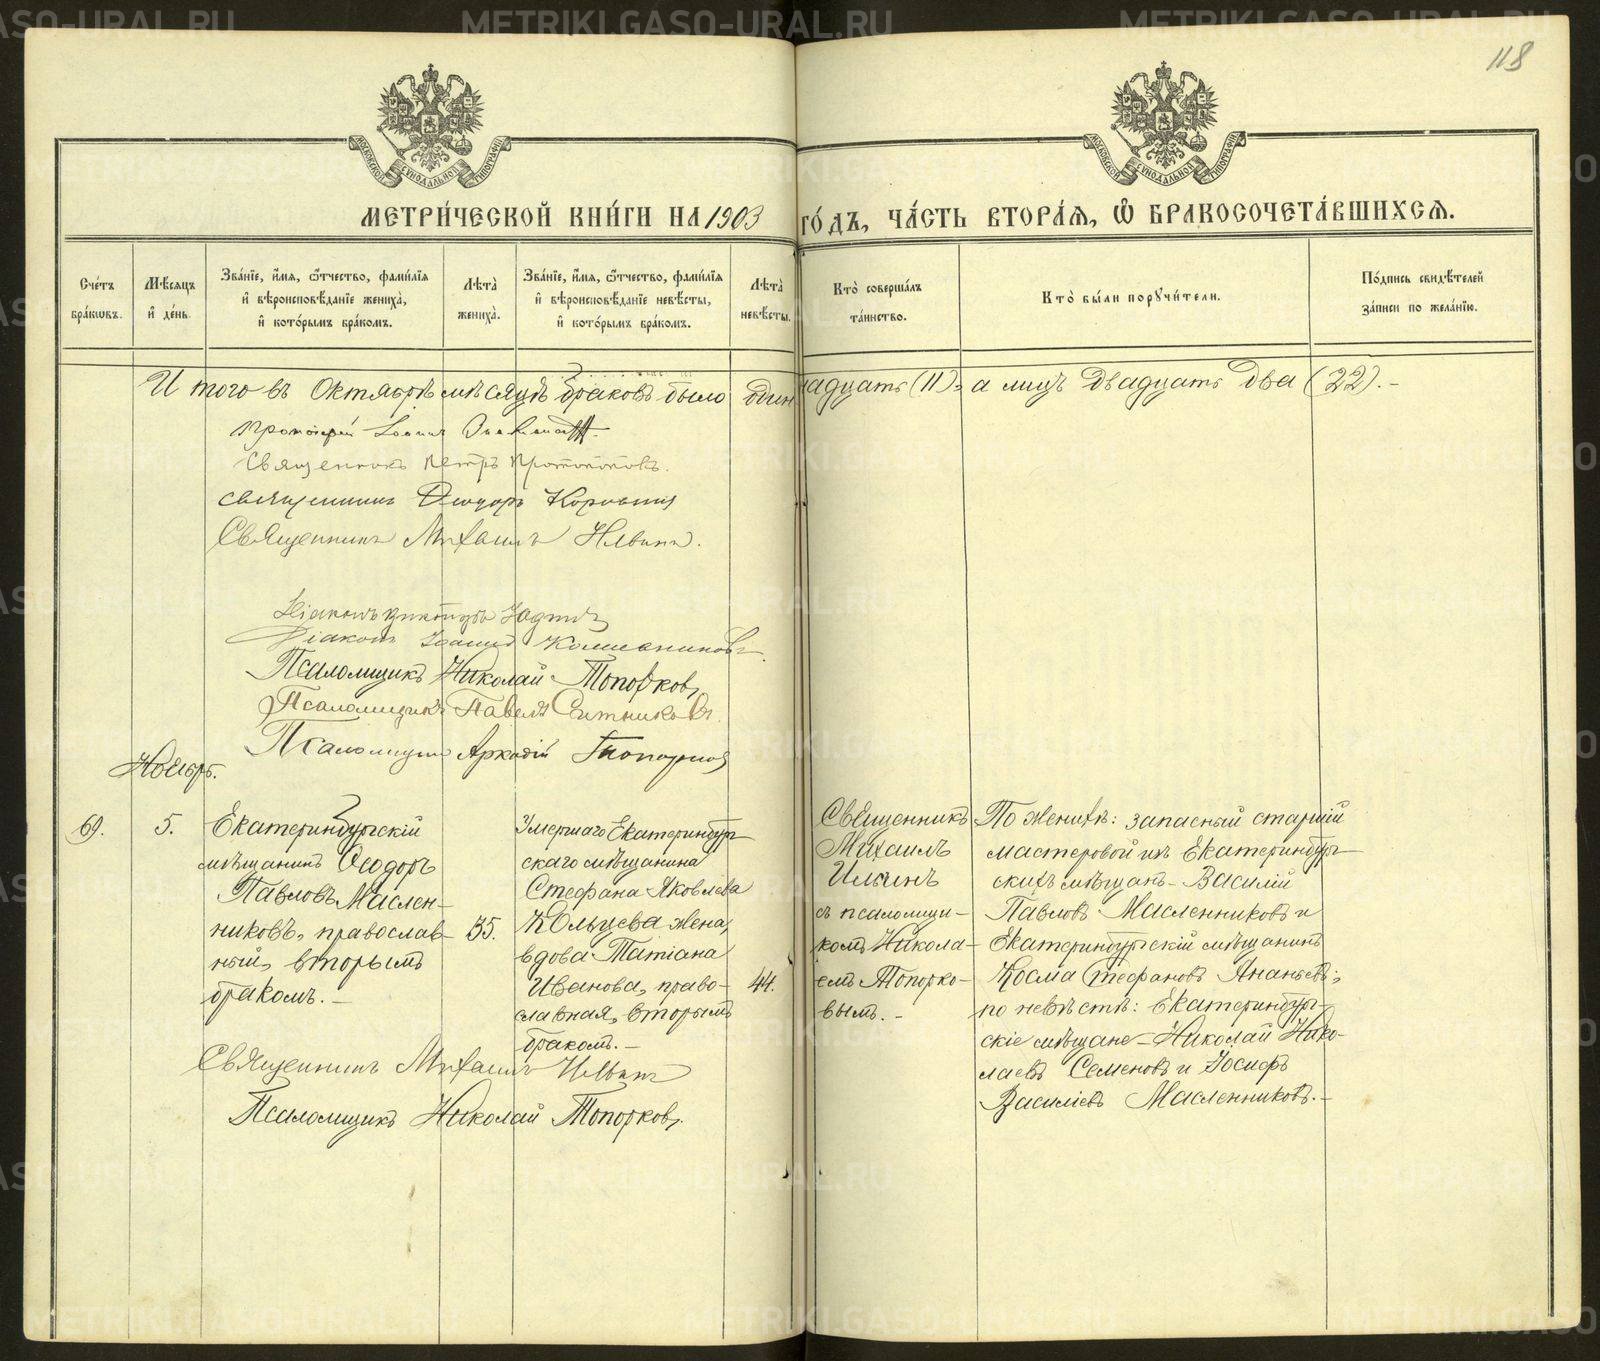 118
МОСКОВСКОЙ СѴНОДАЛЬНОЙ ТИПОГРАФІИ
МОСКОВСКОЙ СѴНОДАЛЬНОЙ ТИПОГРАФІИ
МЕТРИ́ЧЕСКОЙ КНИ́ГИ НА 1903 ГО́ДЪ, ЧА́СТЬ ВТОРА́Я, Ѡ БРАКОСОЧЕТА́ВШИХСЯ.
Сче́тъ бра́кѡвъ.
Мѣ́сяцъ и҆ де́нь.
Зва́нїе, и҆́мя, ѻ҆́тчество, фами́лїя и҆ вѣроисповѣ́данїе жениха̀, и҆ кото́рымъ бра́комъ.
Лѣта̀ жениха̀.
Зва́нїе, и҆́мя, ѻ҆́тчество, фами́лїя и҆ вѣроисповѣ́данїе невѣ́сты, и҆ кото́рымъ бра́комъ.
Лѣта̀ невѣ́сты.
Кто̀ соверша́лъ та́инство.
Кто̀ бы́ли порꙋчи́тели.
По́дпись свидѣ́телей за́писи по жела́нїю.
Итого въ Октябрѣ мѣсяцѣ браковъ было одиннадцать (11), а лицъ двадцать два (22). –
Протоіерей Іоаннъ
Священникъ Петръ Протопоповъ.
Священникъ Ѳеодоръ Коровинъ
Священникъ Михаилъ Ильинъ.
Діаконъ
Діаконъ Іоаннъ
Псаломщикъ Николай Топорковъ
Псаломщикъ Павелъ Ситниковъ.
Псаломщикъ Аркадій
Ноябрь.
69.
5.
Екатеринбургскій
мѣщанинъ Ѳеодоръ
Павловъ Маслен-
никовъ, православ-
ный, вторымъ
бракомъ. –
35.
Умершаго Екатеринбург-
скаго мѣщанина
Стефана Яковлева
Кольцева жена,
вдова Татіана
Иванова, право-
славная, вторымъ
бракомъ. –
44.
Священникъ
Михаилъ
Ильинъ
съ псаломщи-
комъ Никола-
емъ Топорко-
вымъ. –
По женихѣ: запасный старшій
мастеровой изъ Екатеринбург-
скихъ мѣщанъ – Василій
Павловъ Масленниковъ и
Екатеринбургскій мѣщанинъ
Косма Стефановъ Ананьевъ;
по невѣстѣ: Екатеринбург-
скіе мѣщане – Николай Нико-
лаевъ Семеновъ и Іосифъ
Василіевъ Масленниковъ. –
Священникъ Михаилъ Ильинъ
Псаломщикъ Николай Топорковъ.
METRIKI.GASO-URAL.RU